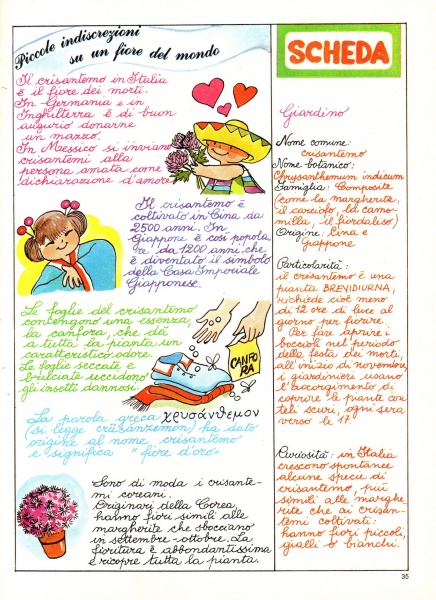 Piccole indiscrezioni
su un fiore del mondo
Il crisantemo in Italia
è il fiore dei morti.
In Germania e in
Inghilterra è di buon
augurio donarne
un mazzo.
In Messico si inviano
crisantemi alla
persona amata come
dichiarazione d'amore.
Il crisantemo è
coltivato in Cina da
2500 anni. In
Giappone è così popola
re da 1200 anni che
è diventato il simbolo
della Casa Imperiale
Giapponese.
Le foglie del crisantemo
contengono una essenza,
la canfora, che dà
a tutta la pianta un
caratteristico odore.
Le foglie seccate e
bruciate uccidono
gli insetti dannosi.
CANFO
RA
La parola greca χρυσάνθεμον
(si legge crüzànzemon) ha dato
origine al nome crisantemo
e significa "fiore d'oro"
Sono di moda i crisante-
mi coreani.
Originari della Corea,
hanno fiori simili alle
margherite che sbocciano
in settembre-ottobre. La
fioritura è abbondantissima
e ricopre tutta la pianta.
SCHEDA
Giardino
Nome comune:
crisantemo
Nome botanico:
Chrysanthemum indicum
Famiglia: Composite
(come la margherita,
il carciofo, la camo-
milla, il fiordaliso)
Origine: Cina e
Giappone
Particolarità:
il crisantemo è una
pianta BREVIDIURNA,
richiede cioè meno
di 12 ore di luce al
giorno per fiorire.
Per fare aprire i
boccioli nel periodo
della festa dei morti,
all'inizio di novembre,
i giardinieri usano
l'accorgimento di
coprire le piante con
teli scuri, ogni sera
verso le 17.
Curiosità: in Italia
crescono spontanee
alcune specie di
crisantemo, più
simili alle marghe
rite che ai crisan-
temi coltivati:
hanno fiori piccoli,
gialli o bianchi.
35